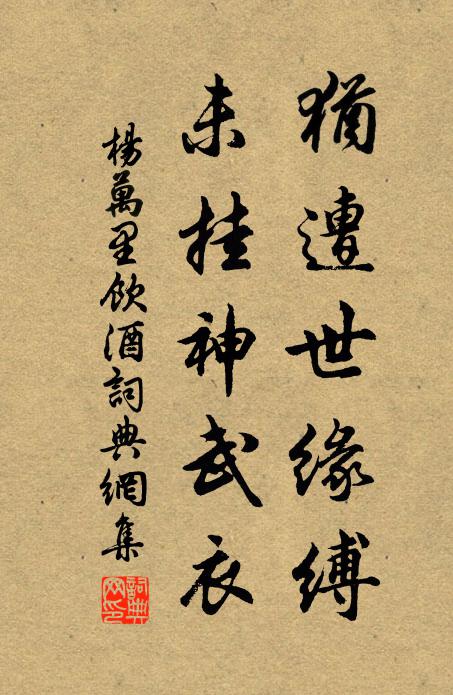 猶遭世緣縛
未挂神武衣
楊萬里飲酒詞典網集
詞典网印